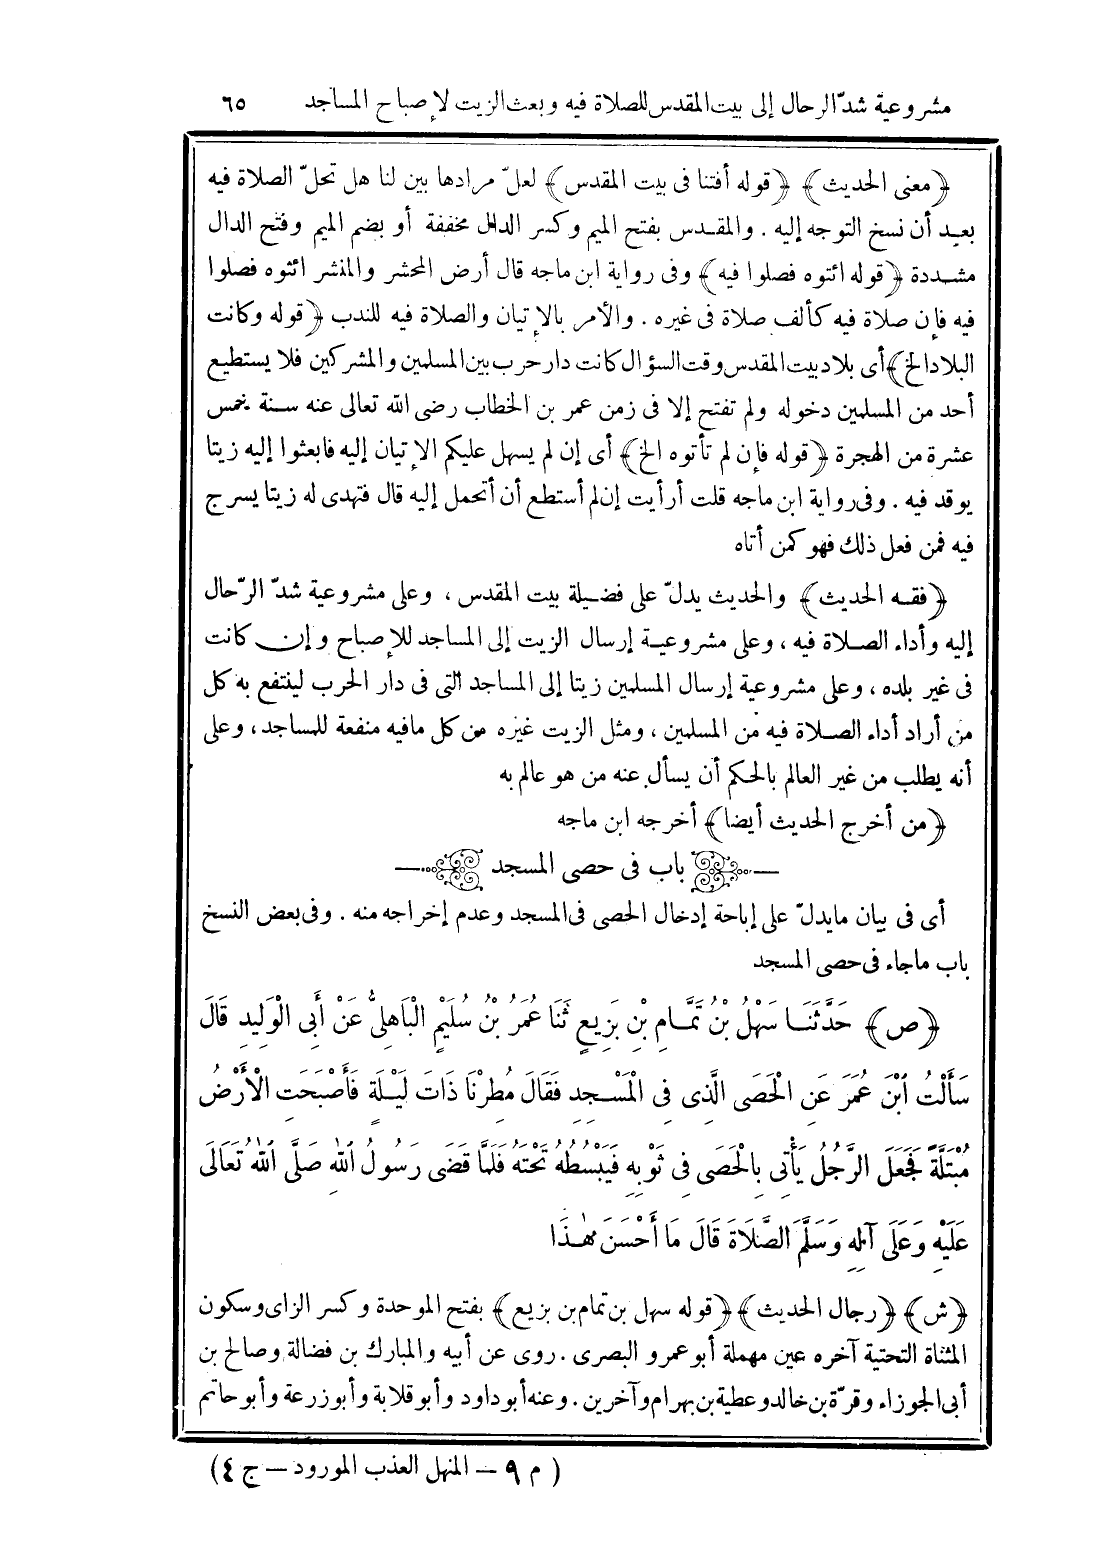 مشروعية شدّ الرحال إلى بيت المقدس للصلاة فيه وبعث الزيت لإصباح المساجد ٦٥
﴿معنى الحديث﴾ ﴿قوله أفتنا فى بيت المقدس﴾ لعلّ مرادها بين لنا هل تحلّ الصلاة فيه
بعيد أن نسخ التوجه إليه . والمقدس بفتح الميم وكسر الدال مخففة أو بضم الميم وفتح الدال
مشددة ﴿قوله ائتوه فصلوا فيه﴾ وفى رواية ابن ماجه قال أرض المحشر والمنشر ائتوه فصلوا
فيه فإن صلاة فيه كألف صلاة فى غيره . والأمر بالإتيان والصلاة فيه للندب ﴿قوله وكانت
البلاد الخ﴾ أى بلاد بيت المقدس وقت السؤال كانت دار حرب بين المسلمين والمشركين فلا يستطيع
أحد من المسلمين دخوله ولم تفتح إلا فى زمن عمر بن الخطاب رضى الله تعالى عنه سنة خمس
عشرة من الهجرة ﴿قوله فإن لم تأتوه الخ﴾ أى إن لم يسهل عليكم الإتيان إليه فابعثوا إليه زيتا
يوقد فيه . وفى رواية ابن ماجه قلت أرأيت إن لم أستطع أن أتحمل إليه قال فتهدى له زيتا يسرج
فيه فمن فعل ذلك فهو كمن أتاه
﴿فقه الحديث﴾ والحديث يدلّ على فضيلة بيت المقدس ، وعلى مشروعية شدّ الرّحال
إليه وأداء الصلاة فيه ، وعلى مشروعية إرسال الزيت إلى المساجد للإصباح وإن كانت
فى غير بلده ، وعلى مشروعية إرسال المسلمين زيتا إلى المساجد التى فى دار الحرب لينتفع به كل
من أراد أداء الصلاة فيه من المسلمين ، ومثل الزيت غيره من كل مافيه منفعة للمساجد ، وعلى
أنه يطلب من غير العالم بالحكم أن يسأل عنه من هو عالم به
﴿من أخرج الحديث أيضا﴾ أخرجه ابن ماجه
باب فى حصى المسجد
أى فى بيان مايدلّ على إباحة إدخال الحصى فى المسجد وعدم إخراجه منه . وفى بعض النسخ
باب ماجاء فى حصى المسجد
﴿ص﴾ حَدَّثَنَا سَهْلُ بْنُ تَمَّامِ بْنِ بَزِيعٍ ثَنَا عُمَرُ بْنُ سُلَيْمٍ الْبَاهِلِىُّ عَنْ أَبِى الْوَلِيدِ قَالَ
سَأَلْتُ ابْنَ عُمَرَ عَنِ الْحَصَى الَّذِى فِى الْمَسْجِدِ فَقَالَ مُطِرْنَا ذَاتَ لَيْلَةٍ فَأَصْبَحَتِ الْأَرْضُ
مُبْتَلَّةً فَجَعَلَ الرَّجُلُ يَأْتِى بِالْحَصَى فِى ثَوْبِهِ فَيَبْسُطُهُ تَحْتَهُ فَلَمَّا قَضَى رَسُولُ اللهِ صَلَّى اللهُ تَعَالَى
عَلَيْهِ وَعَلَى آلِهِ وَسَلَّمَ الصَّلَاةَ قَالَ مَا أَحْسَنَ هٰذَا
﴿ش﴾ ﴿رجال الحديث﴾ ﴿قوله سهل بن تمام بن بزيع﴾ بفتح الموحدة وكسر الزاى وسكون
المثناة التحتية آخره عين مهملة أبو عمرو البصرى . روى عن أبيه والمبارك بن فضالة وصالح بن
أبى الجوزاء وقرّة بن خالد وعطية بن بهرام وآخرين . وعنه أبو داود وأبو قلابة وأبو زرعة وأبو حاتم
( م ٩ – المنهل العذب المورود – ج ٤ )